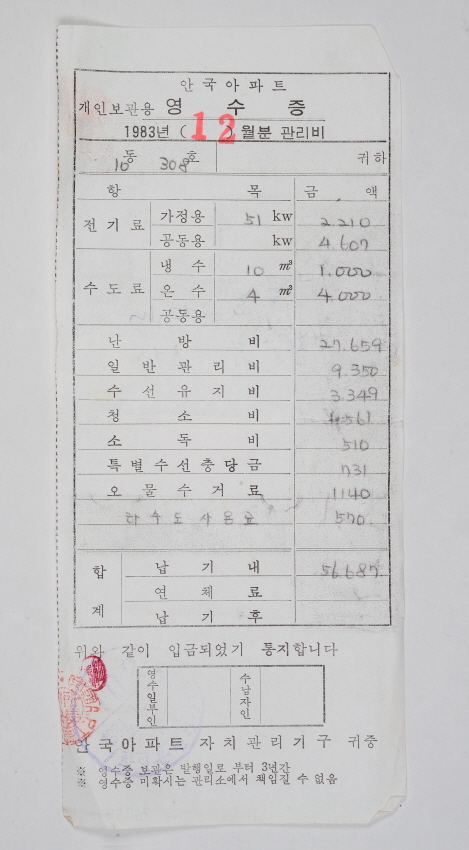 안국아파트
개인보관용 영 수 증
1983년 ( 12 ) 월분 관리비
10동 308호 귀하
항 목 금 액
전기료 가정용 51 kw 2.210
공동용 kw 4.607
수도료 냉수 10 m³ 1.000
온수 4 m³ 4.000
공동용
난방비 27.659
일반관리비 9.350
수선유지비 3.349
청소비 1.561
소독비 510
특별수선충당금 731
오물수거료 1140
하수도사용료 570
합계 납기내 56.687
연체료
납기후
위와 같이 입금되었기 통지합니다
영수일부인 수납자인
안국아파트 자치관리기구 귀중
※ 영수증 보관은 발행일로 부터 3년간
※ 영수증 미확시는 관리소에서 책임질 수 없음